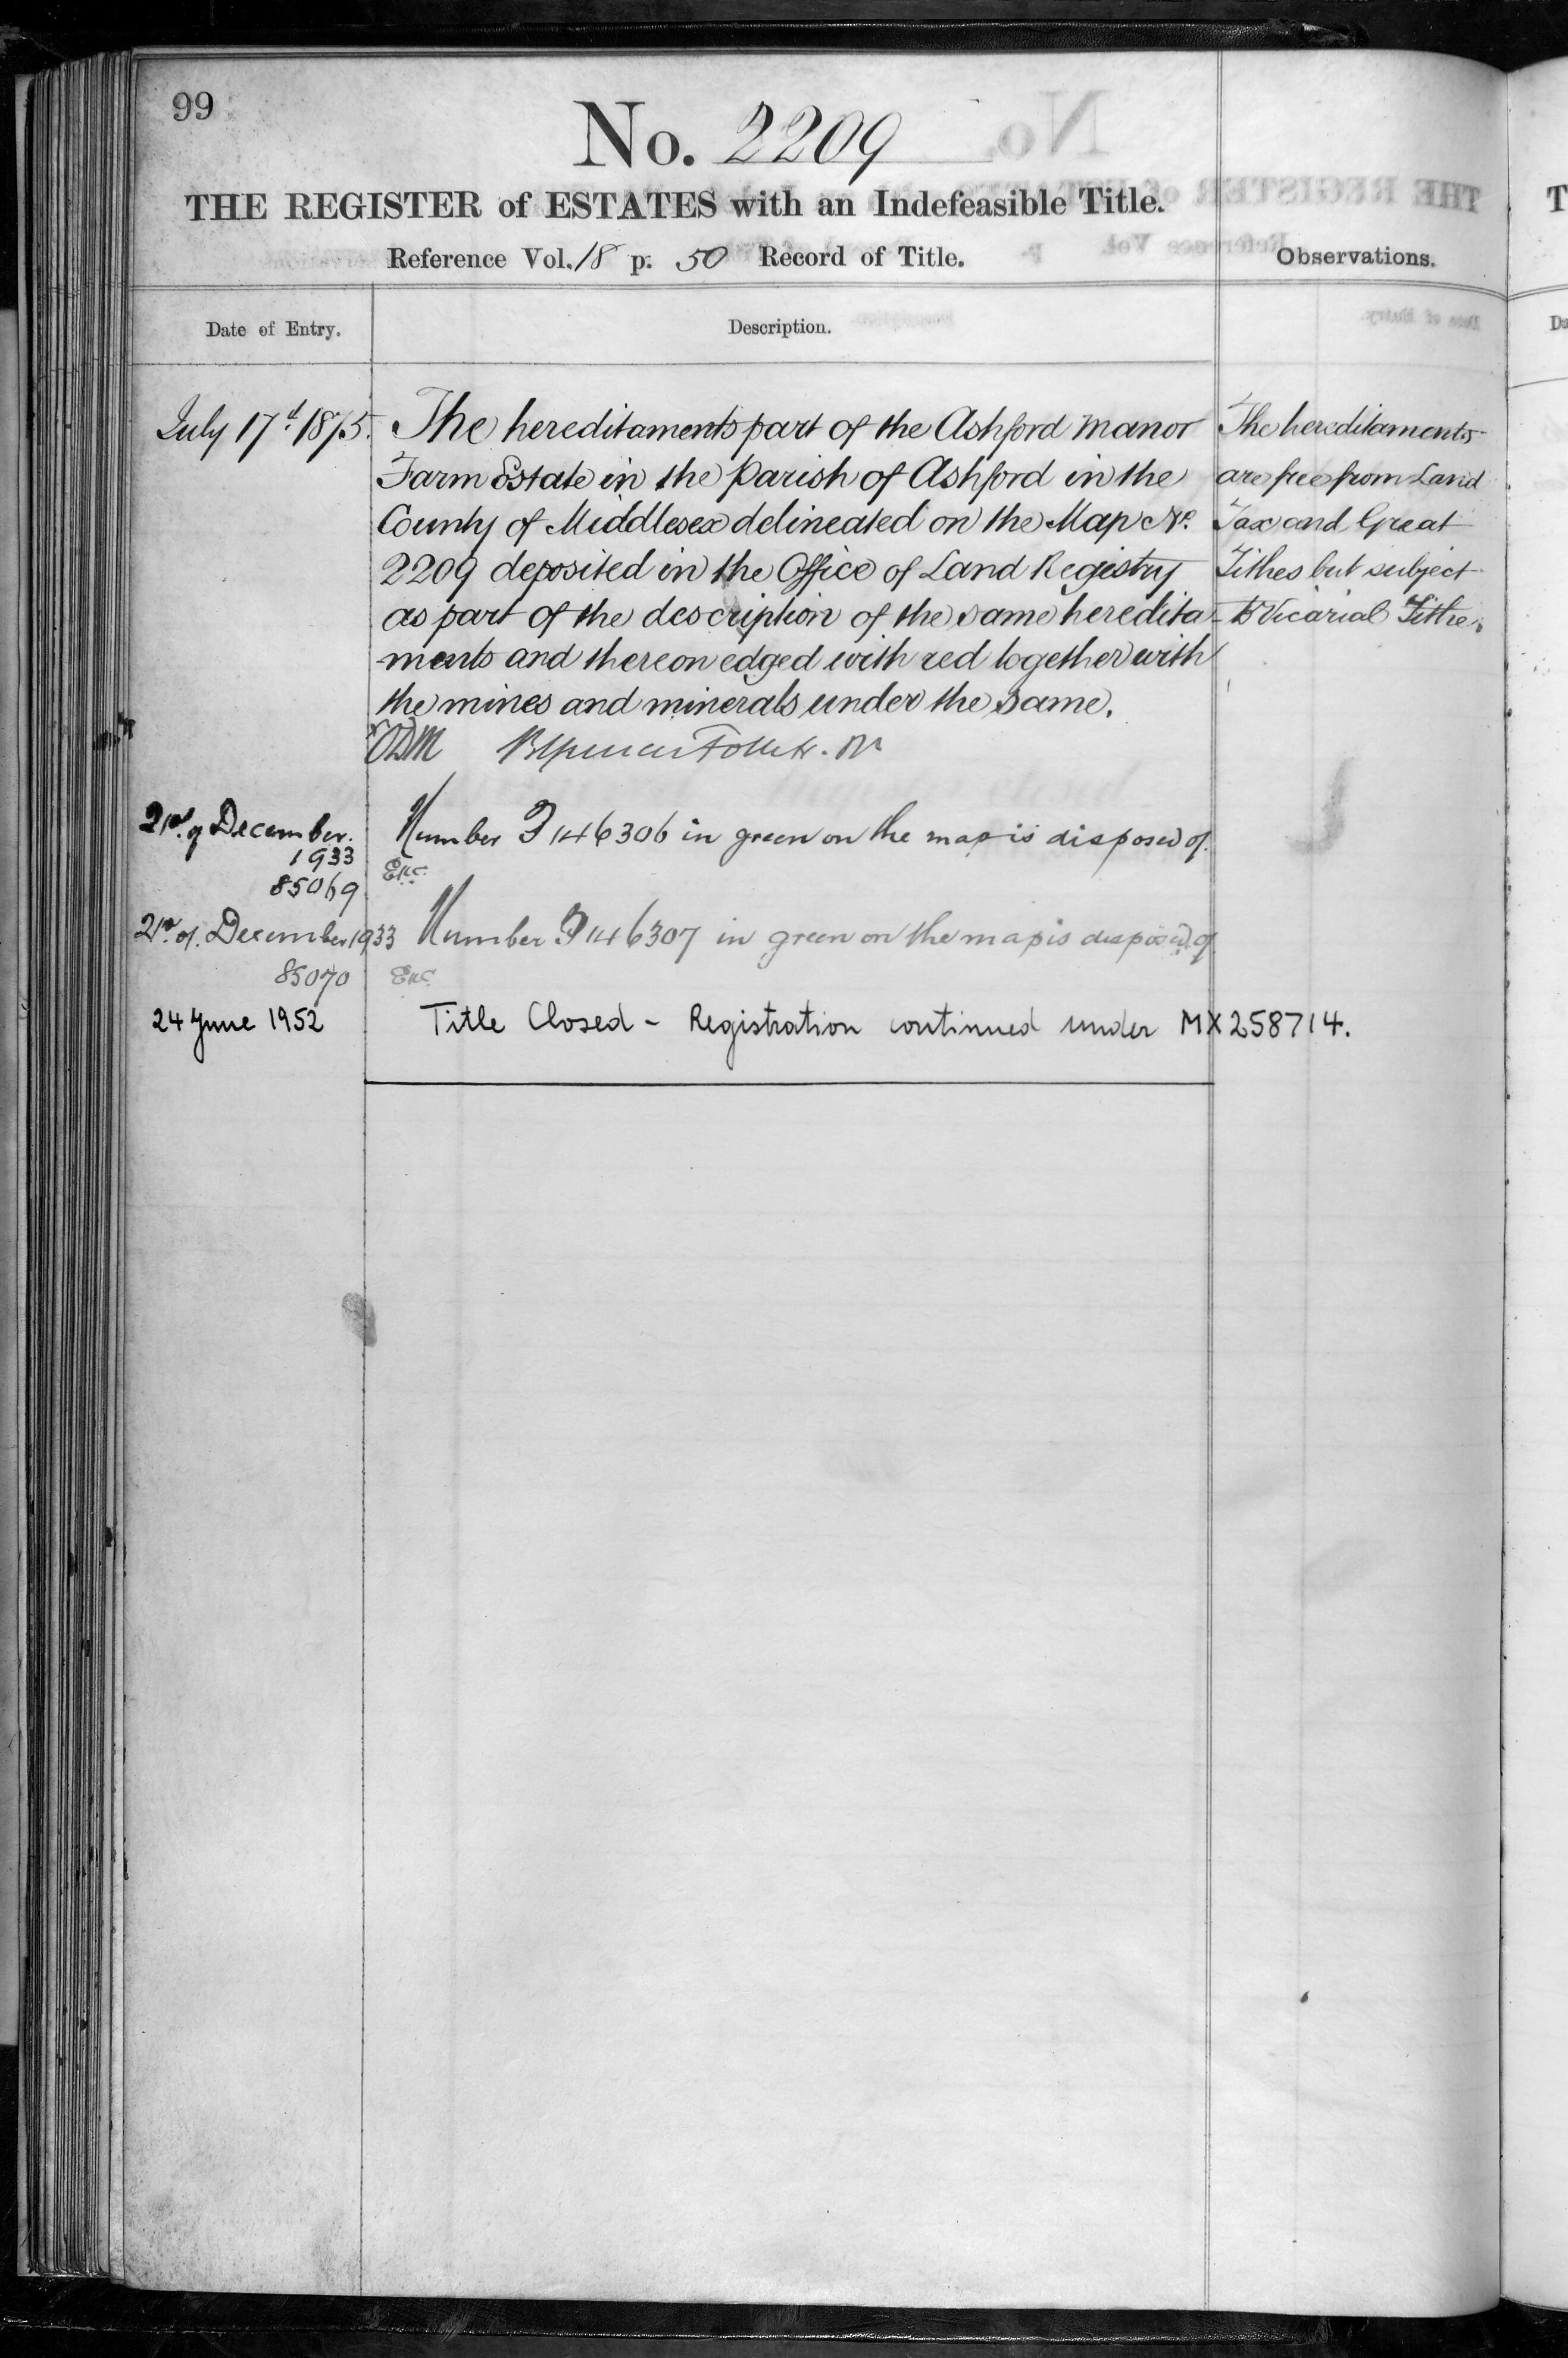 99
No. 2209
THE REGISTER of ESTATES with an Indefeasible Title.
Reference Vol. 18 p. 50 Record of Title.
Observations.
Date of Entry.
Description.
July 17th 1875.
The hereditaments part of the Ashford Manor
Farm Estate in the Parish of Ashford in the
County of Middlesex delineated on the Map No.
2209 deposited in the Office of Land Registry
as part of the description of the same heredita-
ments and thereon edged with red together with
the mines and minerals under the same.
The hereditaments
are free from Land
Tax and Great
Tithes but subject
to Vicarial Tithe.
21st of December
1933
85069
Number 146306 in green on the map is disposed of.
21st of December 1933
85070
Number 146307 in green on the map is disposed of
24 June 1952
Title Closed - Registration continued under MX258714.